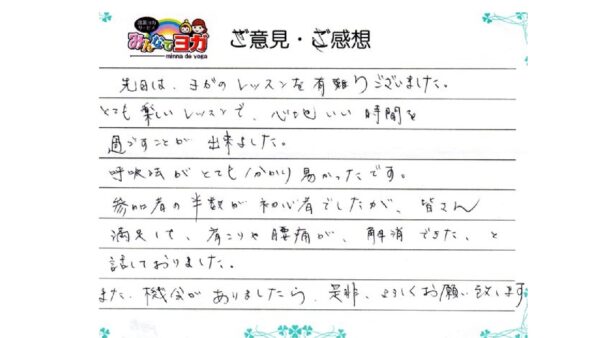 みんなでヨガ
minna de yoga
ご意見・ご感想
先日は、ヨガのレッスンを有難うございました。
とても楽しいレッスンで、心地いい時間を
過ごすことが出来ました。
呼吸法がとても分かり易かったです。
参加者の半数が初心者でしたが、皆さん
満足して、肩こりや腰痛が、解消できた、と
話しておりました。
また、機会がありましたら、是非、よろしくお願い致します